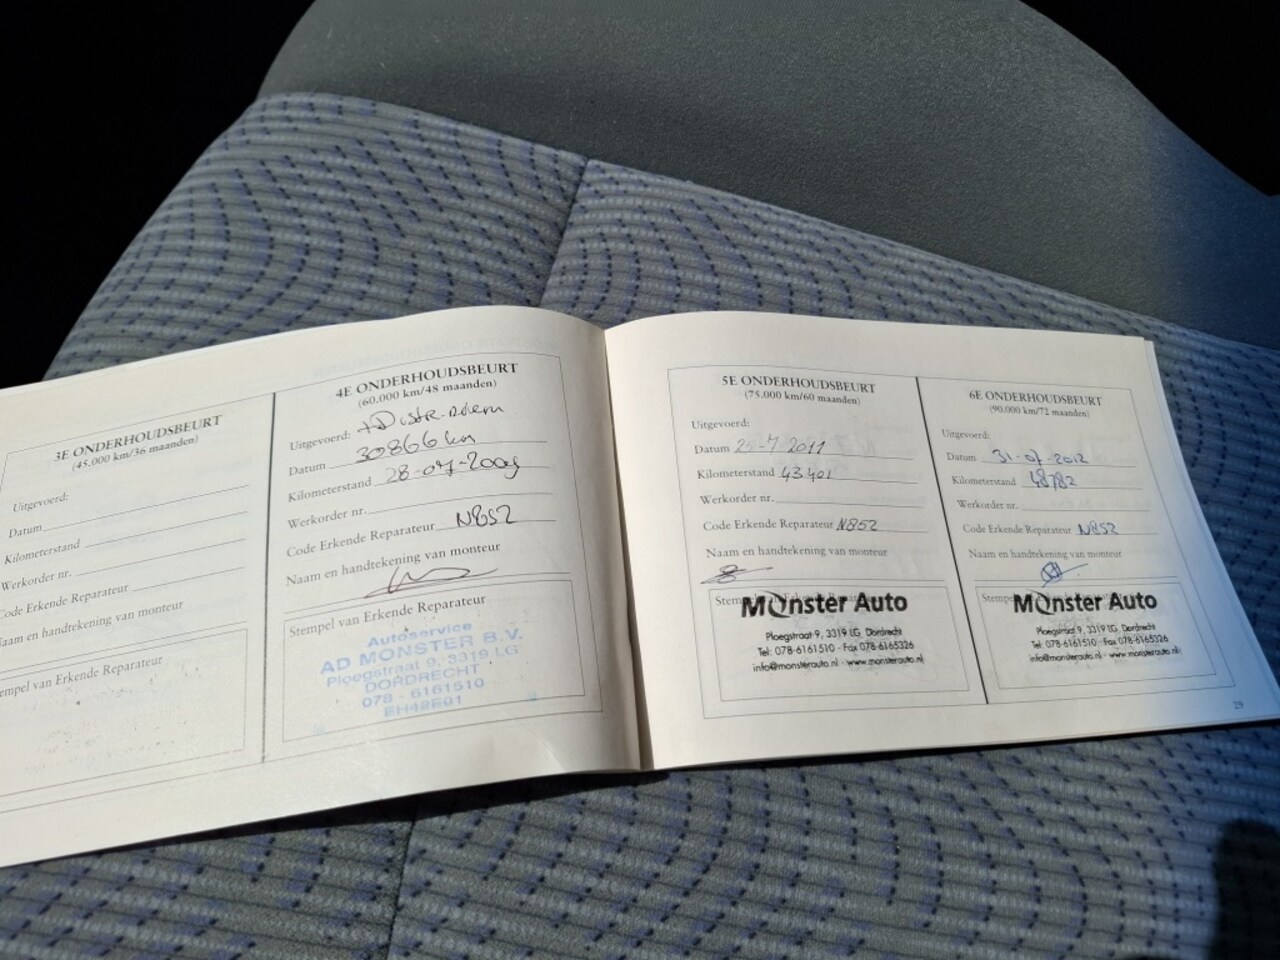 3E ONDERHOUDSBEURT
(45.000 km/36 maanden)
Uitgevoerd:
Datum
Kilometerstand
Werkorder nr.
Code Erkende Reparateur
Naam en handtekening van monteur
Stempel van Erkende Reparateur
4E ONDERHOUDSBEURT
(60.000 km/48 maanden)
Uitgevoerd: +Distr-riem
Datum 30866 km
Kilometerstand 28-07-2009
Werkorder nr.
Code Erkende Reparateur N852
Naam en handtekening van monteur
Stempel van Erkende Reparateur
Autoservice
AD MONSTER B.V.
Ploegstraat 9, 3319 LG
DORDRECHT
078 - 6161510
5E ONDERHOUDSBEURT
(75.000 km/60 maanden)
Uitgevoerd:
Datum 25-7 2011
Kilometerstand 43401
Werkorder nr.
Code Erkende Reparateur N852
Naam en handtekening van monteur
Monster Auto
Ploegstraat 9, 3319 LG Dordrecht
Tel: 078-6161510 - Fax 078-6165326
info@monsterauto.nl - www.monsterauto.nl
6E ONDERHOUDSBEURT
(90.000 km/72 maanden)
Uitgevoerd:
Datum 31-07-2012
Kilometerstand 48782
Werkorder nr.
Code Erkende Reparateur N852
Naam en handtekening van monteur
Monster Auto
Ploegstraat 9, 3319 LG Dordrecht
Tel: 078-6161510 - Fax 078-6165326
info@monsterauto.nl - www.monsterauto.nl
29